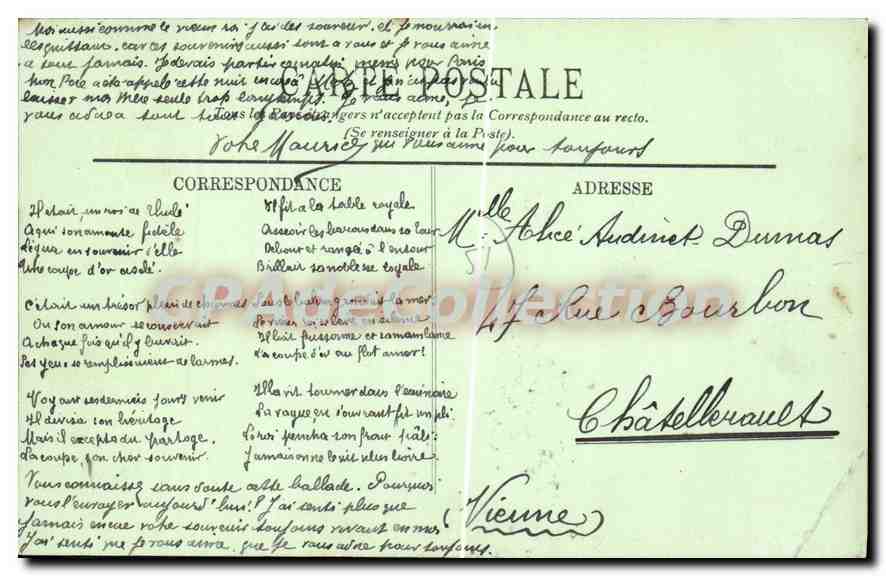 Moi aussi comme le vieux roi j'ai des souvenir, et je mourrai en
les quittant, car ces souvenirs aussi sont a vous et je vous aime
a tout jamais. Je devais partir ce matin mais pour Paris
mon Père a été appelé cette nuit encore
laisser ma Mère seule trop longtemps. Je vous aime, je
vous adorea tout
CARTE POSTALE
Tous les Pays étrangers n'acceptent pas la Correspondance au recto.
(Se renseigner à la Poste).
Votre Maurice qui vous aime pour toujours
CORRESPONDANCE
Il était un roi de Thulé
A qui son amante fidèle
Légua en souvenir d'elle
Une coupe d'or ciselé.
C'était un trésor plein de charmes
Où son amour se conservait
A chaque fois qu'il y buvait
Ses yeux se remplissaient de larmes.
Voyant ses derniers jours venir
Il divisa son héritage
Mais il excepta du partage.
La coupe, son cher souvenir.
Il fit a la table royale
Asseoir les barons dans sa tour
Debout et rangée à l'entour
Brillait sa noblesse royale
Sous le balcon grondait la mer
Le vieux roi se lève en silence
Il boit frissonne et sa main lance
La coupe d'or au flot amer!
Il la vit tourner dans l'eau noire
La vague en s'ouvrant fit un pli
Le roi pencha son front pâli:
Jamais on ne le vit plus boire.
Vous connaissez sans doute cette ballade. Pourquoi
vous l'envoyer aujourd'hui? J'ai senti plus que
jamais encore votre souvenir toujours vivant en moi
J'ai senti que je vous aime, que je vous adore pour toujours.
ADRESSE
Mlle Alice Audinet-Dumas
47 Rue Bourbon
Châtellerault
(Vienne)
51
CPADeCollection